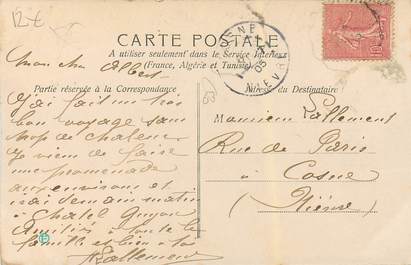 12 €
CARTE POSTALE
A utiliser seulement dans le Service Intérieur
(France, Algérie et Tunisie)
Partie réservée à la Correspondance
Adresse du Destinataire
Mon cher Albert
J'ai fait un très
bon voyage sans
trop de chaleur
Je viens de faire
une promenade
aux environs et
irai demain matin
à Chatel Guyon
Amitiés à toute la
famille et bien à toi
Lallement
Monsieur Lallement
Rue de Paris
à Cosne
(Nièvre)
COSNE
05
NIEVRE
10